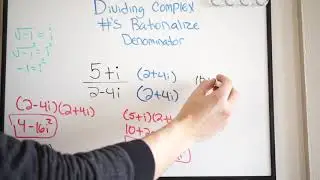 Dividing Complex
#'s Rationalize
Denominator
√-1 = i
√-1² = i²
-1 = i²
5+i (2+4i)
2-4i (2+4i)
(2-4i)(2+4i)
4-16i²
(5+i)(2+4i
10+2